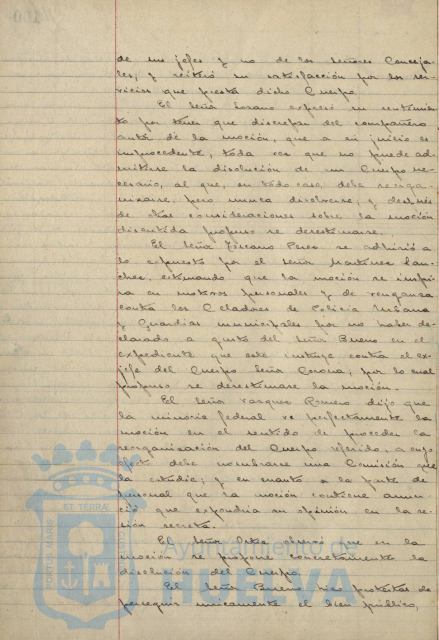 de sus jefes y no de los señores Conceja-
les; y reiteró su satisfacción por los ser-
vicios que presta dicho Cuerpo.
El Señor Lozano expresó su sentimien-
to por tener que discrepar del compañero
autor de la moción, que a su juicio es
improcedente, toda vez que no puede ad-
mitirse la disolución de un Cuerpo ne-
cesario, al que, en todo caso, debe reorga-
nizarse pero nunca disolverse, y después
de otras consideraciones sobre la moción
discutida propuso se desestimase.
El Señor Tiscano Perea se adhirió a
lo expuesto por el Señor Martínez San-
chez, estimando que la moción se inspi-
ra en motivos personales y de venganza
contra los Celadores de Policia Urbana
y Guardias municipales por no haber de-
clarado a gusto del Señor Bueno en el
expediente que este instruye contra el ex-
jefe del Cuerpo Señor Corona; por lo cual
propuso se desestimase la moción.
El Señor Vazquez Romero dijo que
la minoria federal ve perfectamente la
moción en el sentido de proceder a la
reorganización del Cuerpo referido, a cuyo
efecto debe nombrarse una Comisión que
la estudie; y en cuanto a la parte de
personal que la moción contiene anun-
ció que expondria su opinión en la se-
sión secreta.
El Señor observó que en la
moción se propone concretamente la
disolución del Cuerpo.
El Señor Bueno hizo protestas de
perseguir unicamente el bien público,
PORTUS MARIS ET TERRÆ
Ayuntamiento de
HUELVA